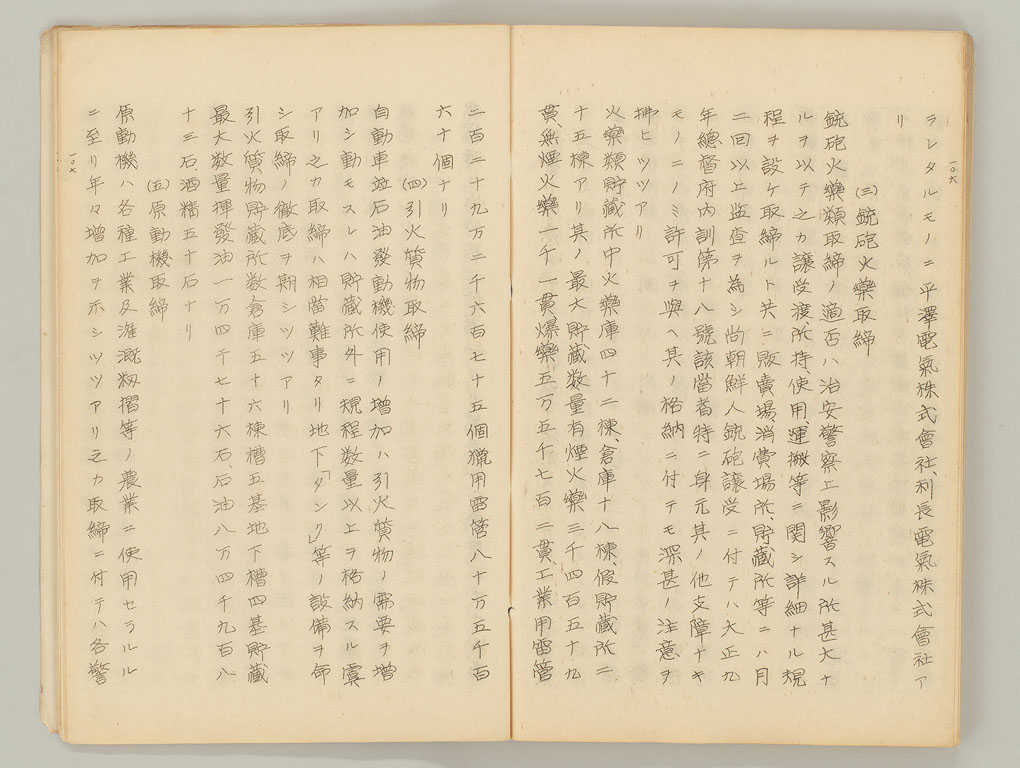 一〇六
ラレタルモノニ平澤電氣株式會社、利長電氣株式會社ア
リ
(三)銃砲火藥取締
銃砲火藥類取締ノ適否ハ治安警察上影響スル所甚大ナ
ルヲ以テ之カ讓受渡、所持、使用、運搬等ニ関シ詳細ナル規
程ヲ設ケ取締ルト共ニ販賣場、消費場所、貯藏所等ニハ月
二回以上監査ヲ為シ尚朝鮮人銃砲讓受ニ付テハ大正九
年總督府內訓第十八號該當者特ニ身元其ノ他支障ナキ
モノニノミ許可ヲ與ヘ其ノ格納ニ付テモ深甚ノ注意ヲ
拂ヒツツアリ
火藥類貯藏所中火藥庫四十二棟、倉庫十八棟、假貯藏所二
十五棟アリ其ノ最大貯藏数量有煙火藥三千四百五十九
貫、無煙火藥一千一貫、爆藥五万五千七百二貫、工業用雷管
三百二十九万三千六百七十五個獵用雷管八十万五千百
六十個ナリ
(四)引火質物取締
自動車並石油發動機使用ノ增加ハ引火質物ノ需要ヲ增
加シ動モスレハ貯藏所外ニ規程数量以上ヲ格納スル虞
アリ之カ取締ハ相當難事タリ地下「タンク」等ノ設備ヲ命
シ取締ノ徹底ヲ期シツツアリ
引火質物貯藏所数倉庫五十六棟槽五基地下槽四基貯藏
最大数量揮發油一万四千七十六石、石油八万四千九百八
十三石、酒精五十石ナリ
(五)原動機取締
原動機ハ各種工業及灌漑籾摺等ノ農業ニ使用セラルル
ニ至リ年々增加ヲ示シツツアリ之カ取締ニ付テハ各警
一〇六